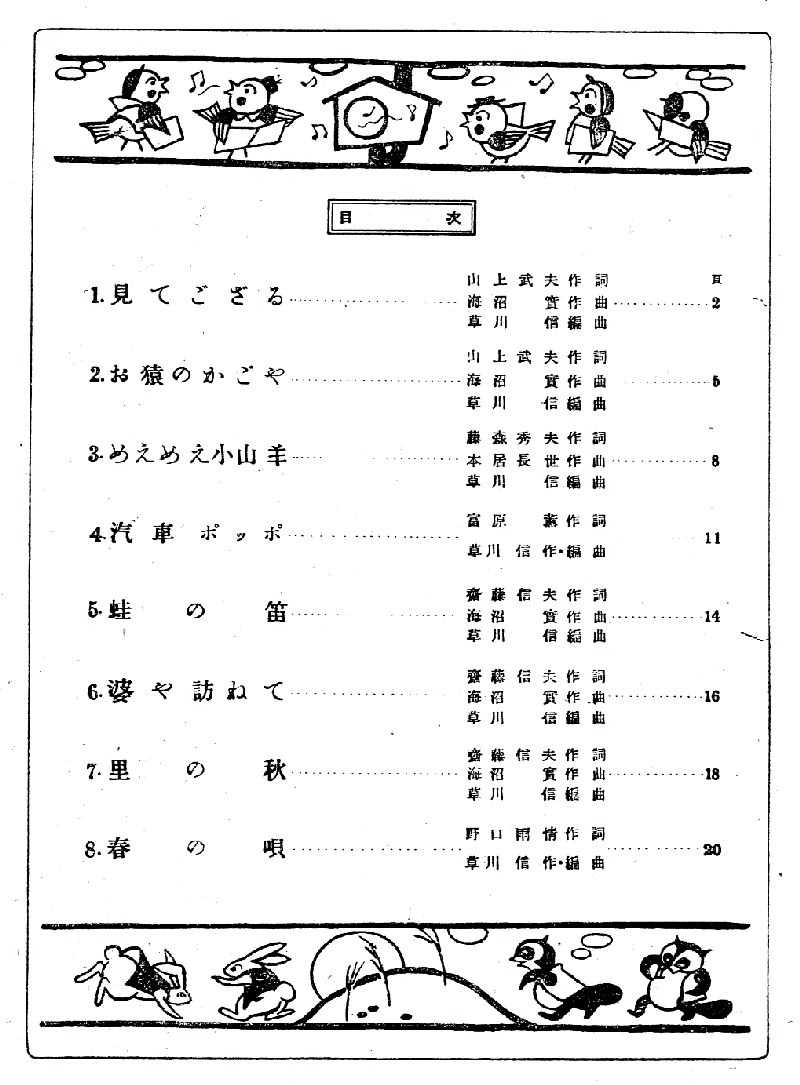 目次
頁
1. 見てござる
山上武夫作詞
海沼實作曲 2
草川信編曲
2. お猿のかごや
山上武夫作詞
海沼實作曲 5
草川信編曲
3. めえめえ小山羊
藤森秀夫作詞
本居長世作曲 8
草川信編曲
4. 汽車ポッポ
富原薫作詞
草川信作・編曲 11
5. 蛙の笛
齋藤信夫作詞
海沼實作曲 14
草川信編曲
6. 婆や訪ねて
齋藤信夫作詞
海沼實作曲 16
草川信編曲
7. 里の秋
齋藤信夫作詞
海沼實作曲 18
草川信編曲
8. 春の唄
野口雨情作詞
草川信作・編曲 20